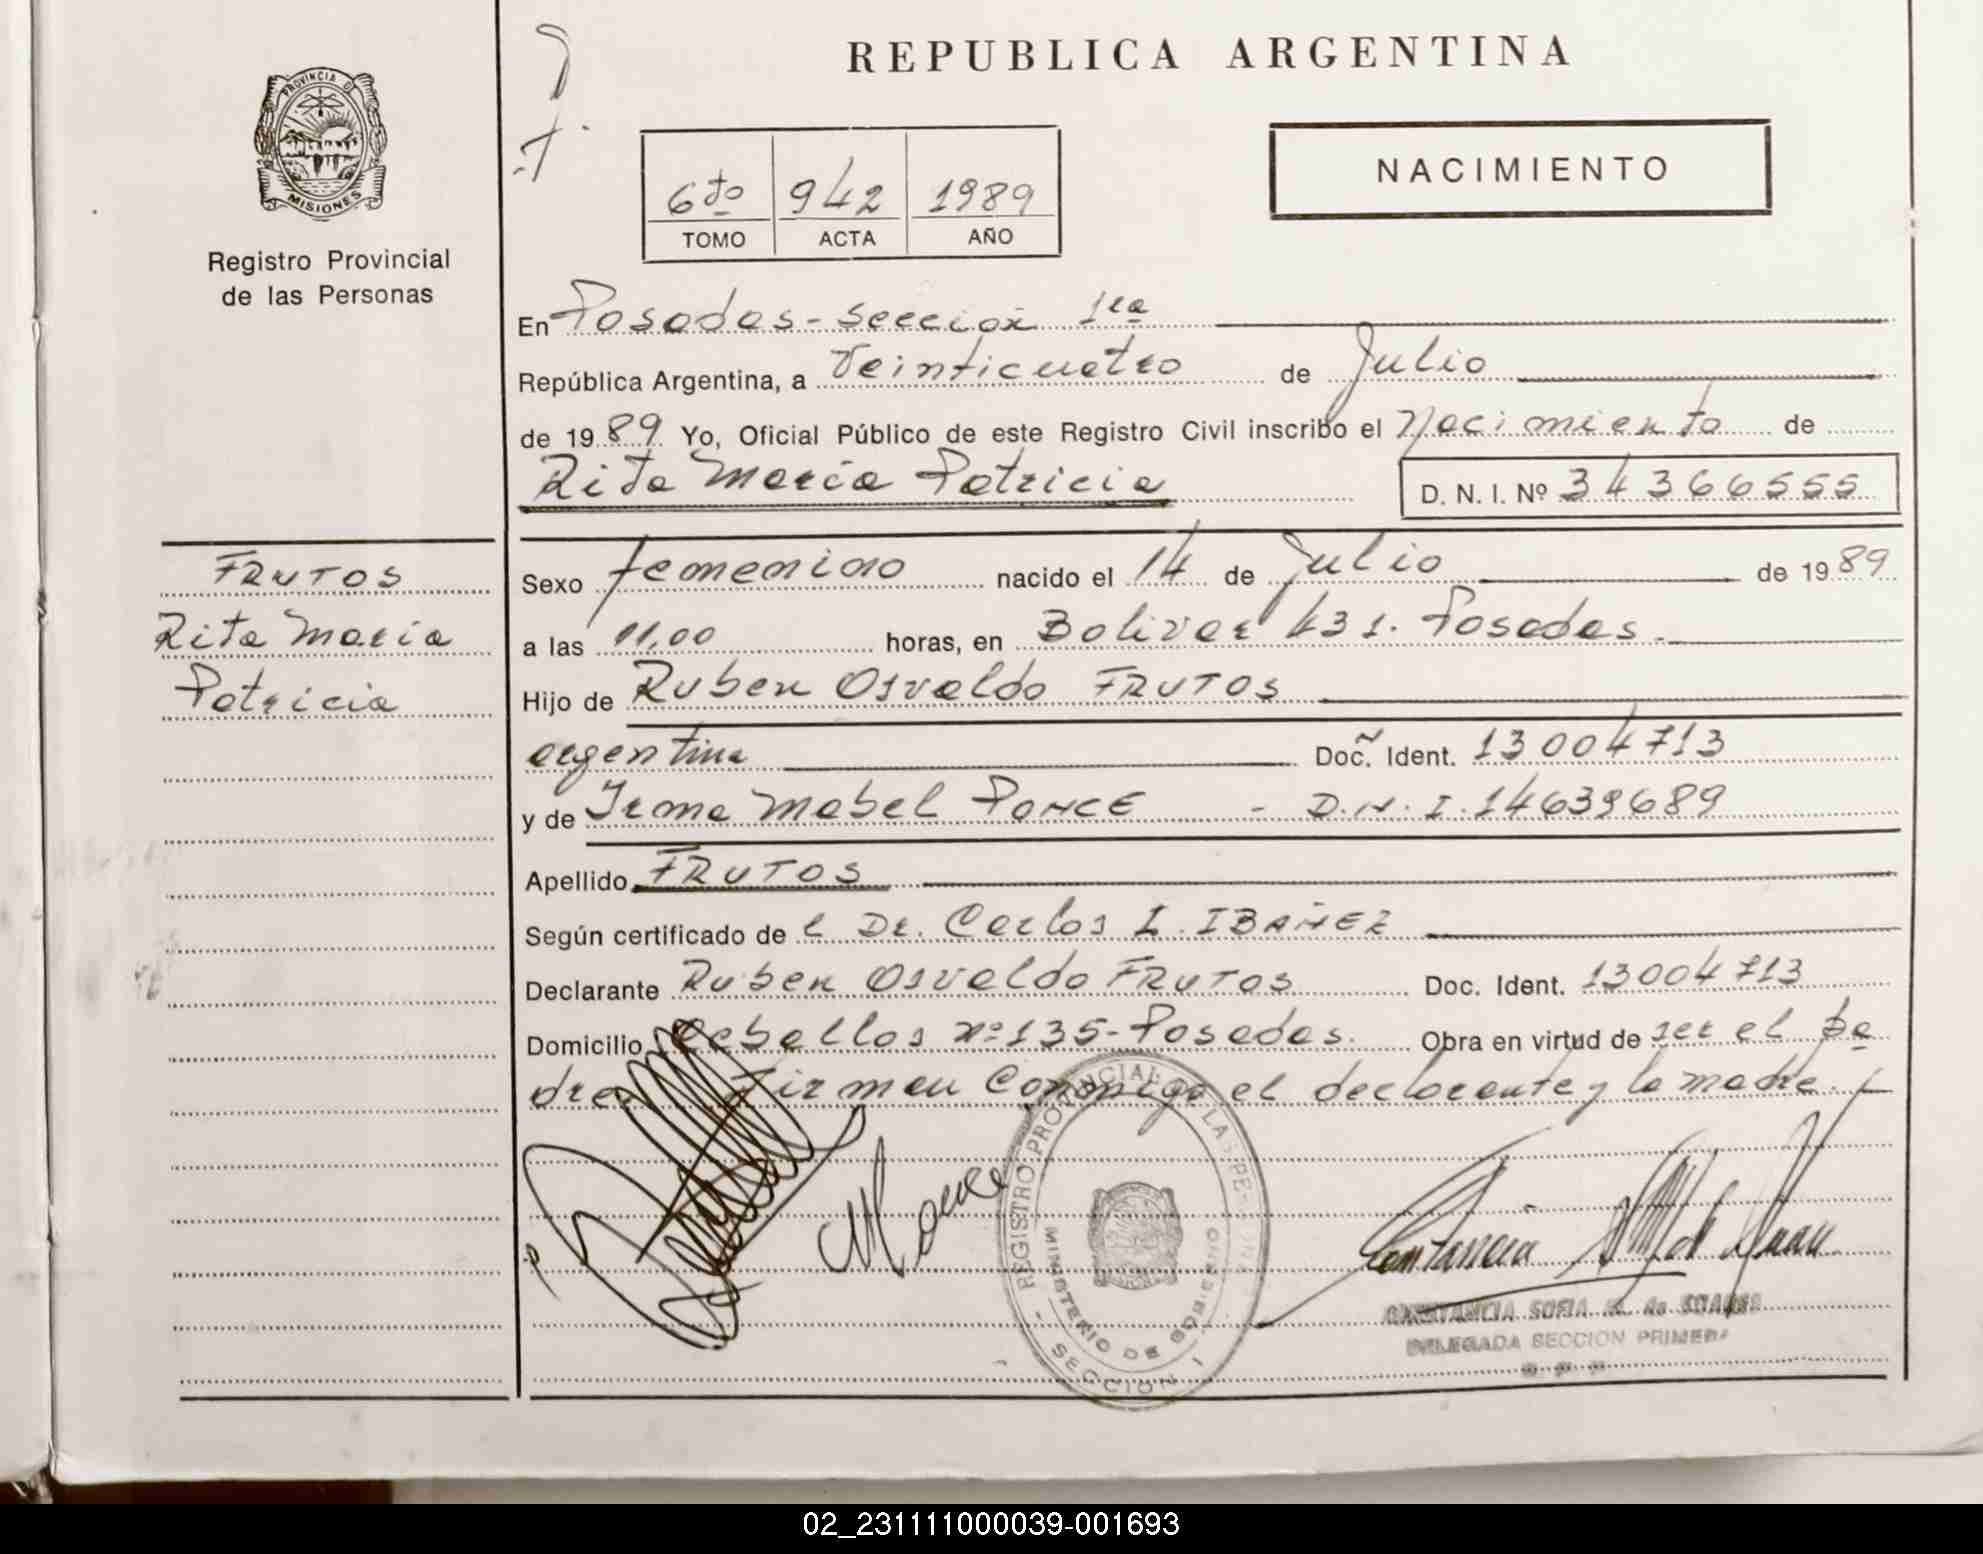 REPUBLICA ARGENTINA
PROVINCIA D
MISIONES
Registro Provincial
de las Personas
6to 942 1989
TOMO ACTA AÑO
NACIMIENTO
En Posadas - Sección 1ra
República Argentina, a Veinticuatro de Julio
de 1989 Yo, Oficial Público de este Registro Civil inscribo el Nacimiento de
Rita María Patricia D. N. I. Nº 34366555
FRUTOS
Rita María
Patricia
Sexo femenino nacido el 14 de Julio de 1989
a las 11,00 horas, en Bolivar 431. Posadas.
Hijo de Ruben Osvaldo FRUTOS
argentina Doc. Ident. 13004713
y de Irma Mabel PONCE - D.N.I. 14639689
Apellido FRUTOS
Según certificado de l Dr. Carlos I. IBAÑEZ
Declarante Ruben Osvaldo FRUTOS Doc. Ident. 13004713
Domicilio Ceballos Nº 135 - Posadas. Obra en virtud de ser el pa
dre. Firman conmigo el declarante y la madre. -
REGISTRO PROVINCIAL DE LAS PERSONAS
MINISTERIO DE GOBIERNO
- SECCION 1
CONSTANCIA SOFIA M. de SUAREZ
DELEGADA SECCION PRIMERA
02_231111000039-001693